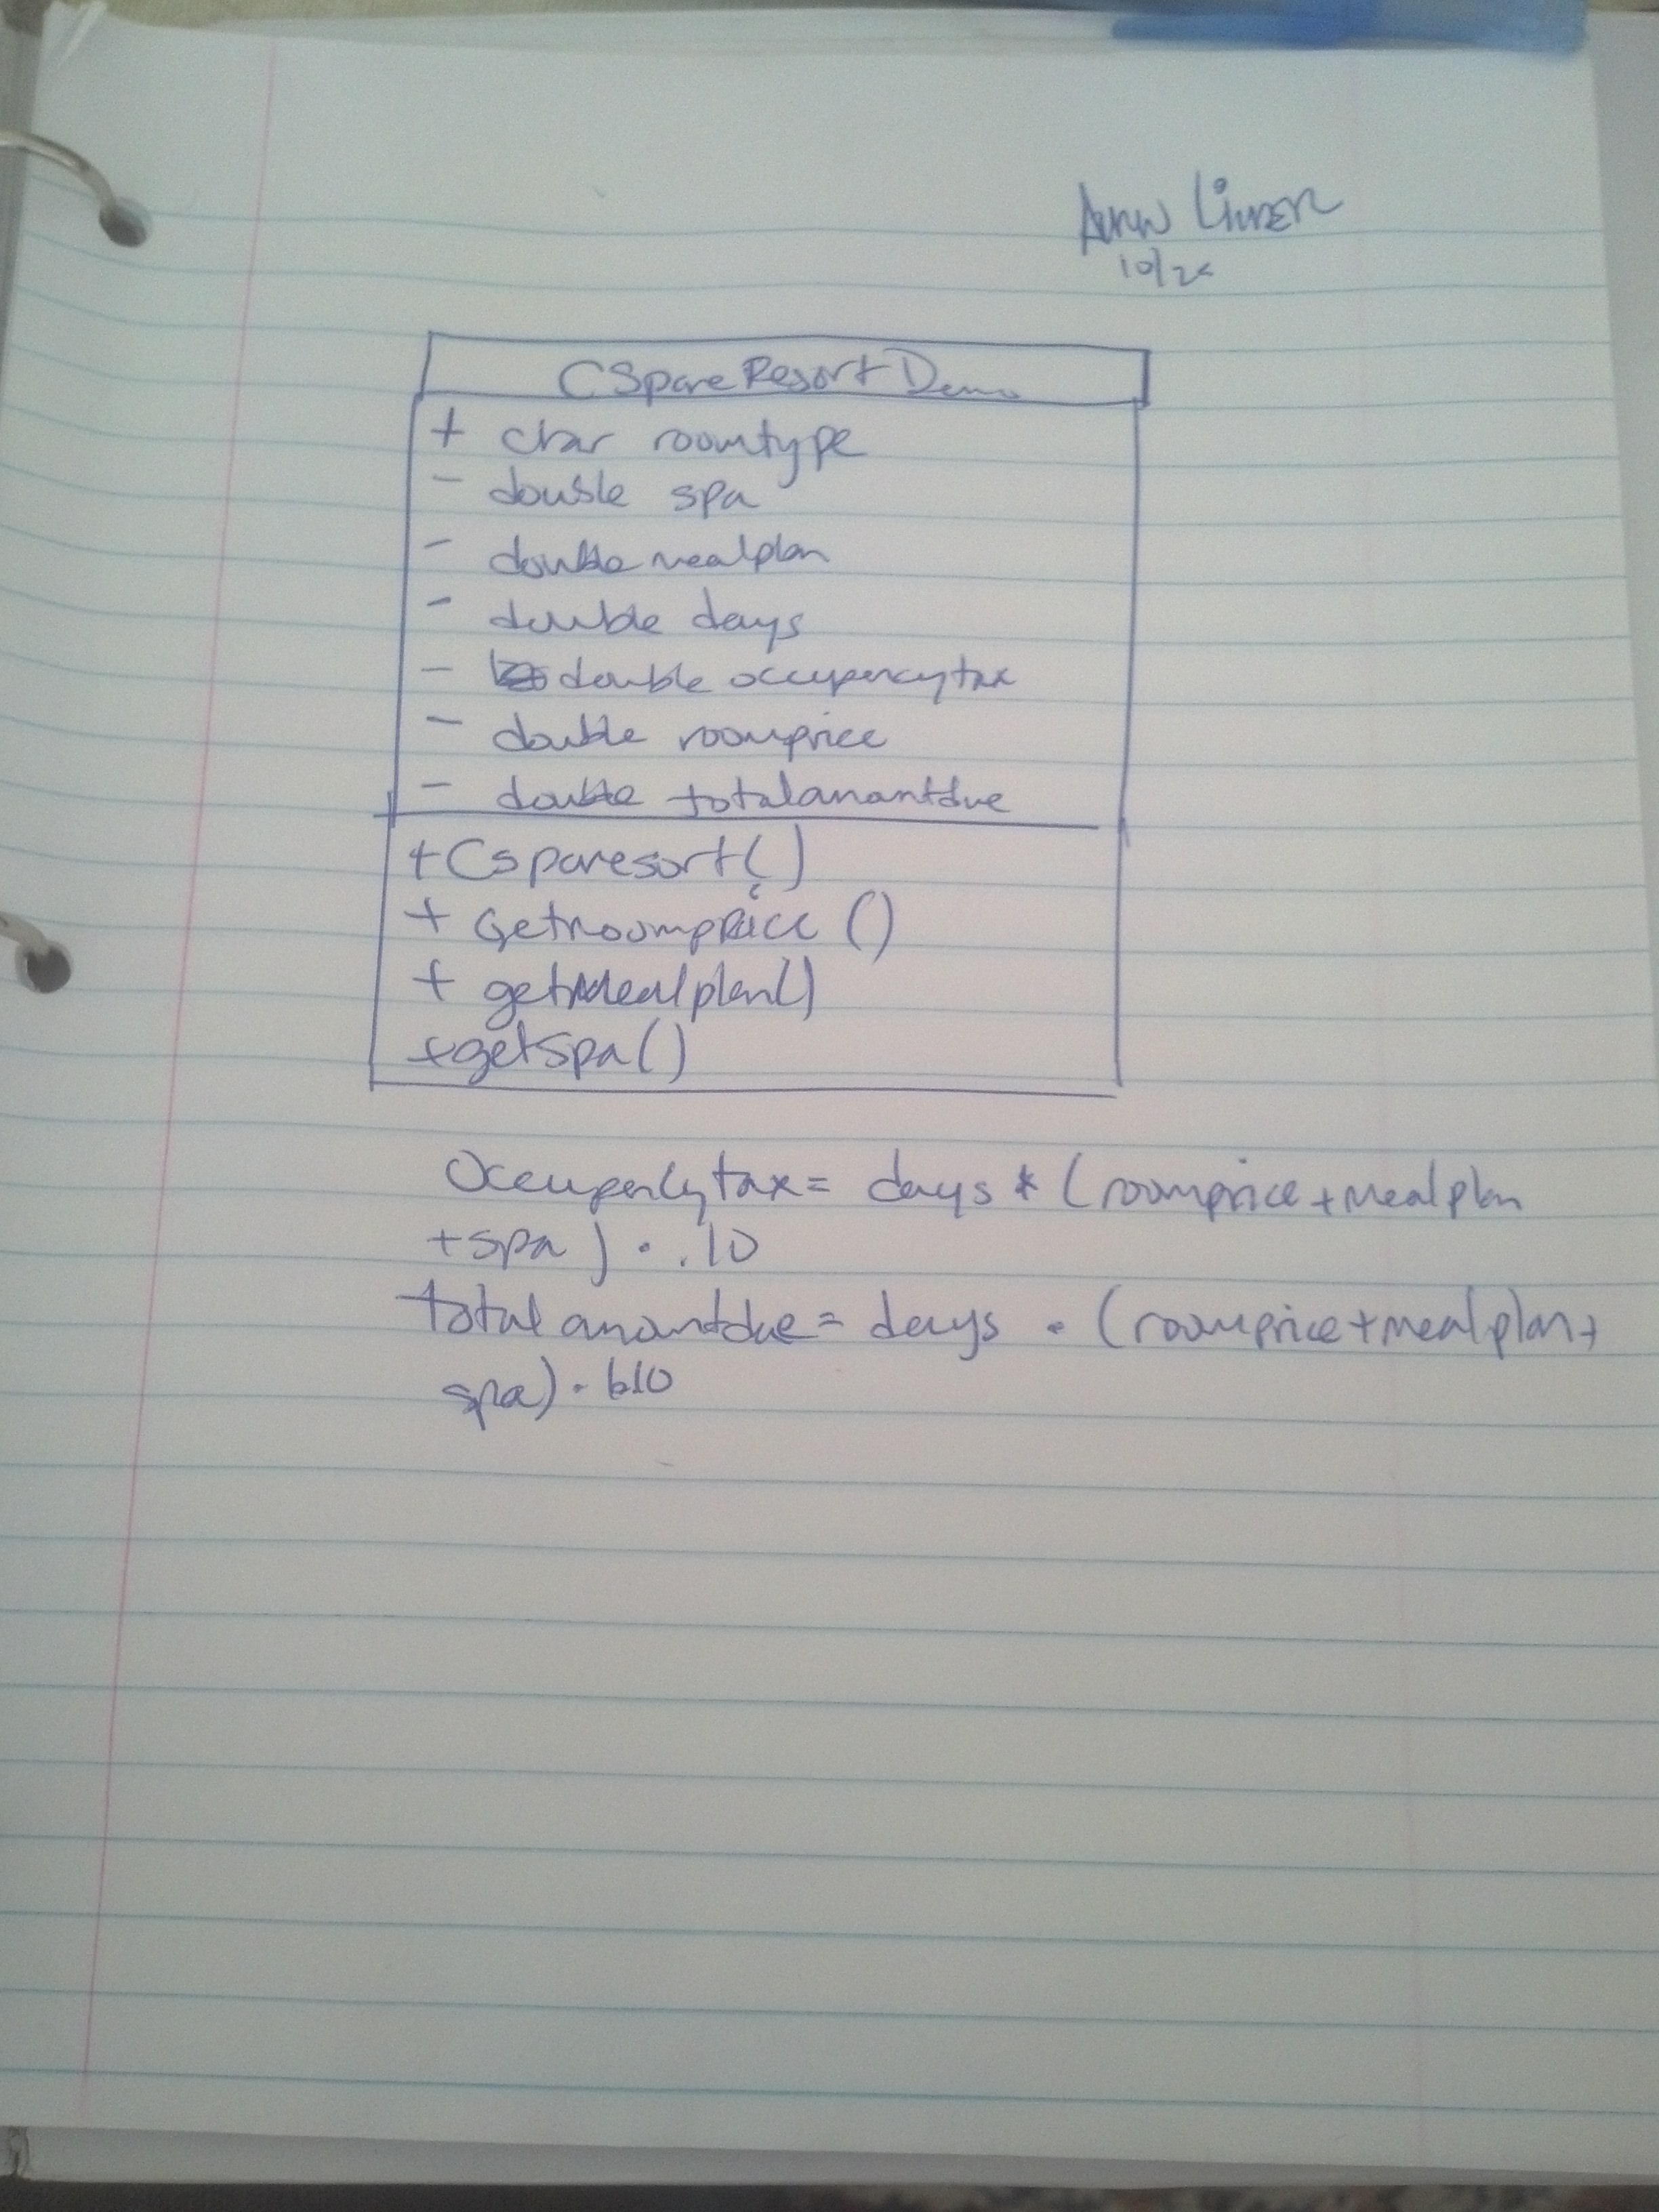 10/2
CSpareResortDemo
+ char roomtype
- double spa
- double mealplan
- double days
- double occupencytax
- double roomprice
- double totalamontdue
+Csparesort()
+ Getroomprice ()
+ getMealplan()
+getspa()
Occupencytax= days * (roomprice+mealplan
+spa) · .10
total amontdue= days · (roomprice+mealplan+
spa) ·